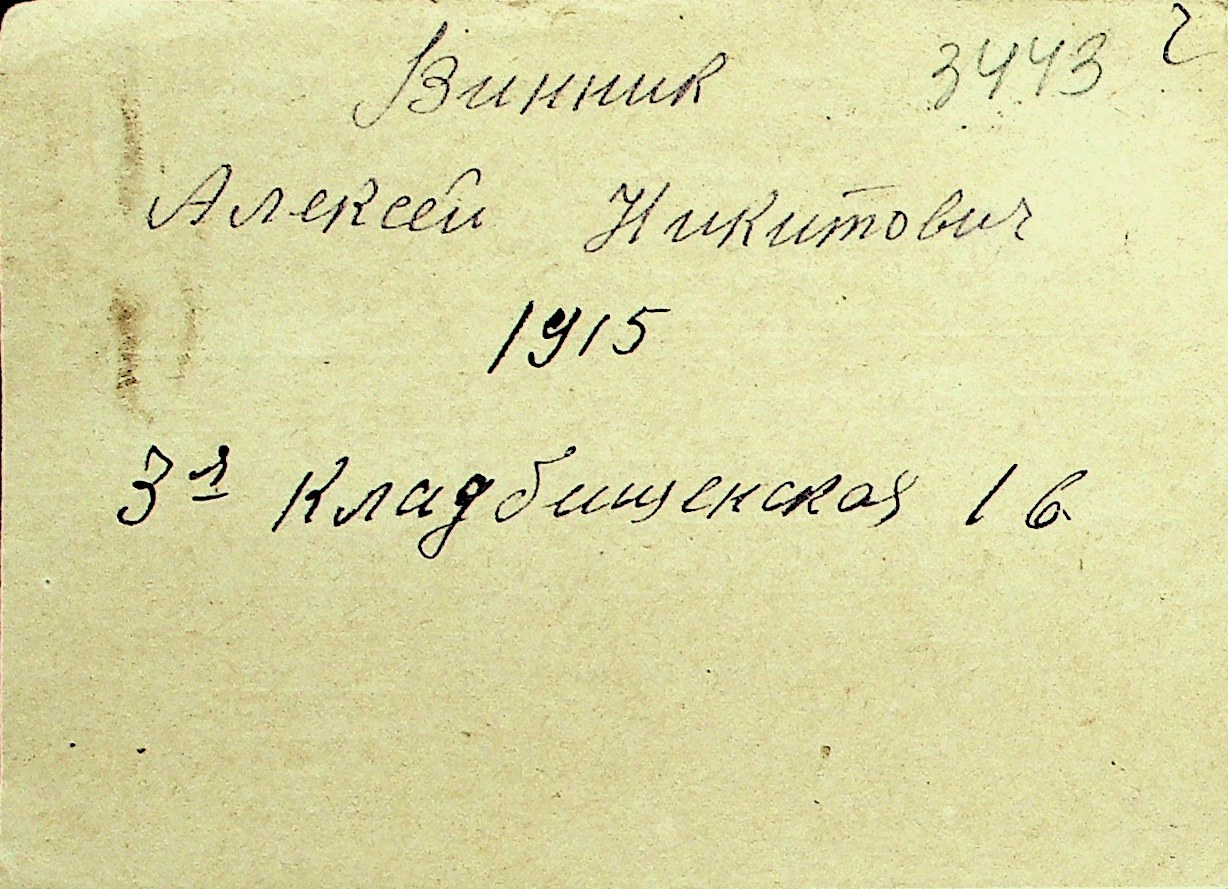 Винник 3443 г
Алексей Никитович
1915
3я Кладбищенская 16